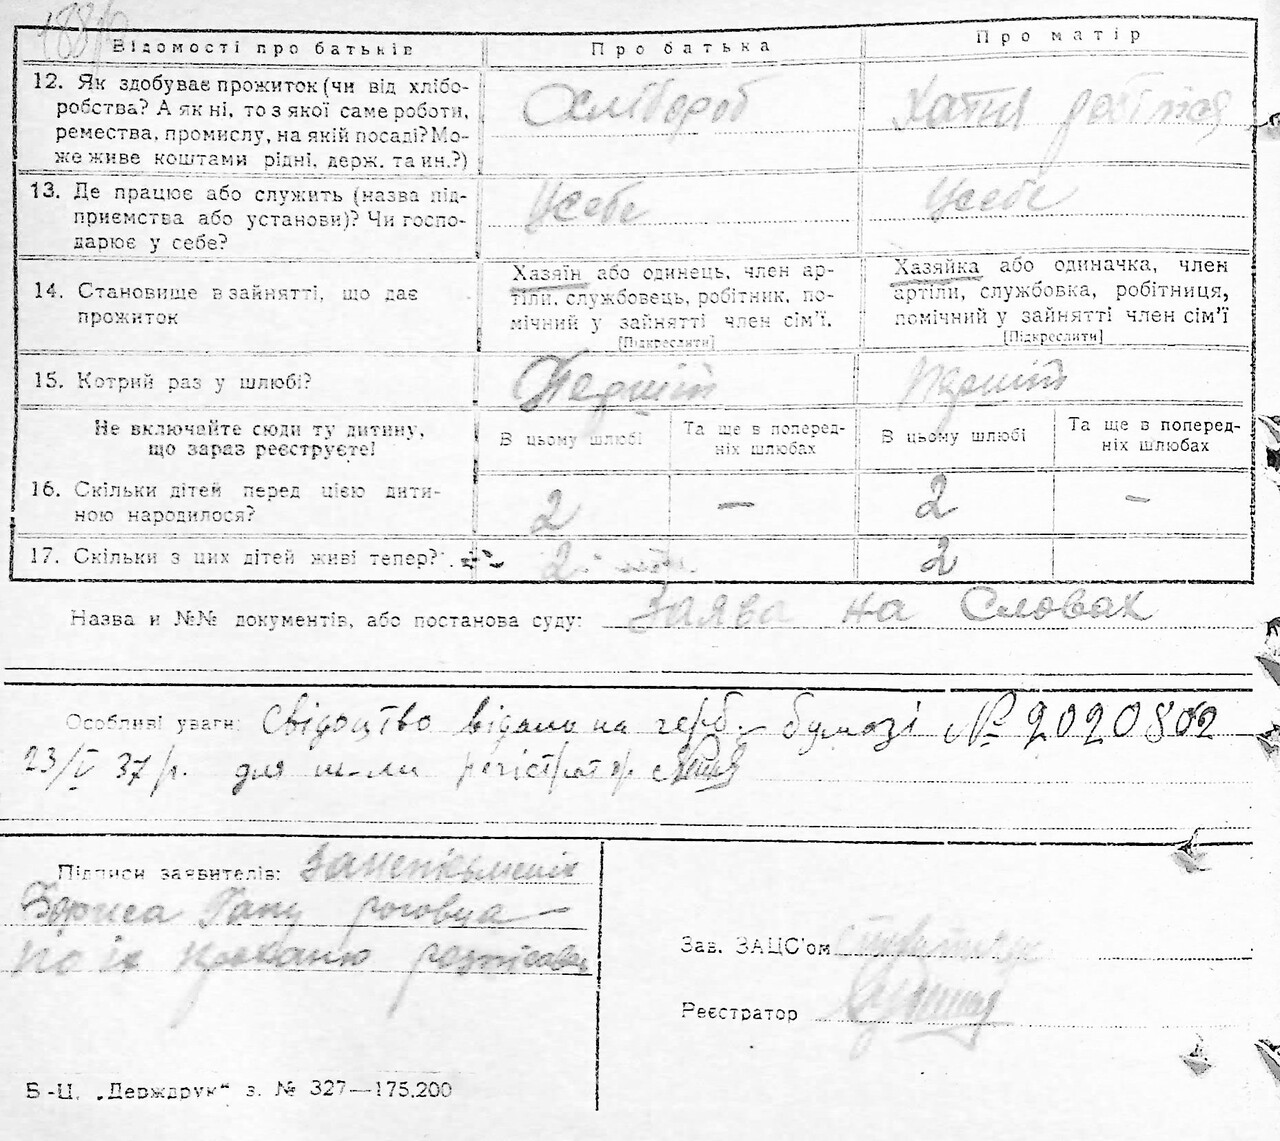 Відомості про батьків
Про батька
Про матір
12. Як здобуває прожиток (чи від хлібо-
робства? А як ні, то з якої саме роботи,
ремества, промислу, на якій посаді? Мо-
же живе коштами рідні, держ. та ин.?)
Хлібороб
Хатня робітня
13. Де працює або служить (назва під-
приємства або установи)? Чи госпо-
дарює у себе?
Усебе
Усебе
14. Становище в зайнятті, що дає
прожиток
Хазяїн або одинець, член ар-
тіли, службовець, робітник, по-
мічний у зайнятті член сім'ї.
[Підкреслити]
Хазяйка або одиначка, член
артіли, службовка, робітниця,
помічний у зайнятті член сім'ї
[Підкреслити]
15. Котрий раз у шлюбі?
Перший
Перший
Не включайте сюди ту дитину,
що зараз реєструєте!
В цьому шлюбі
Та ще в поперед-
ніх шлюбах
В цьому шлюбі
Та ще в поперед-
ніх шлюбах
16. Скільки дітей перед цією дити-
ною народилося?
2
—
2
—
17. Скільки з цих дітей живі тепер?
2
2
Назва и №№ документів, або постанова суду: Заява на Словах
Особливі уваги: Свідоцтво відано на герб. бумазі № 2020802
23/V 37 р. для регістратор
Підписи заявителів:
по їх проханю розписав
Зав. ЗАЦС'ом
Реєстратор
Б-Ц. „Держдрук“ з. № 327—175.200